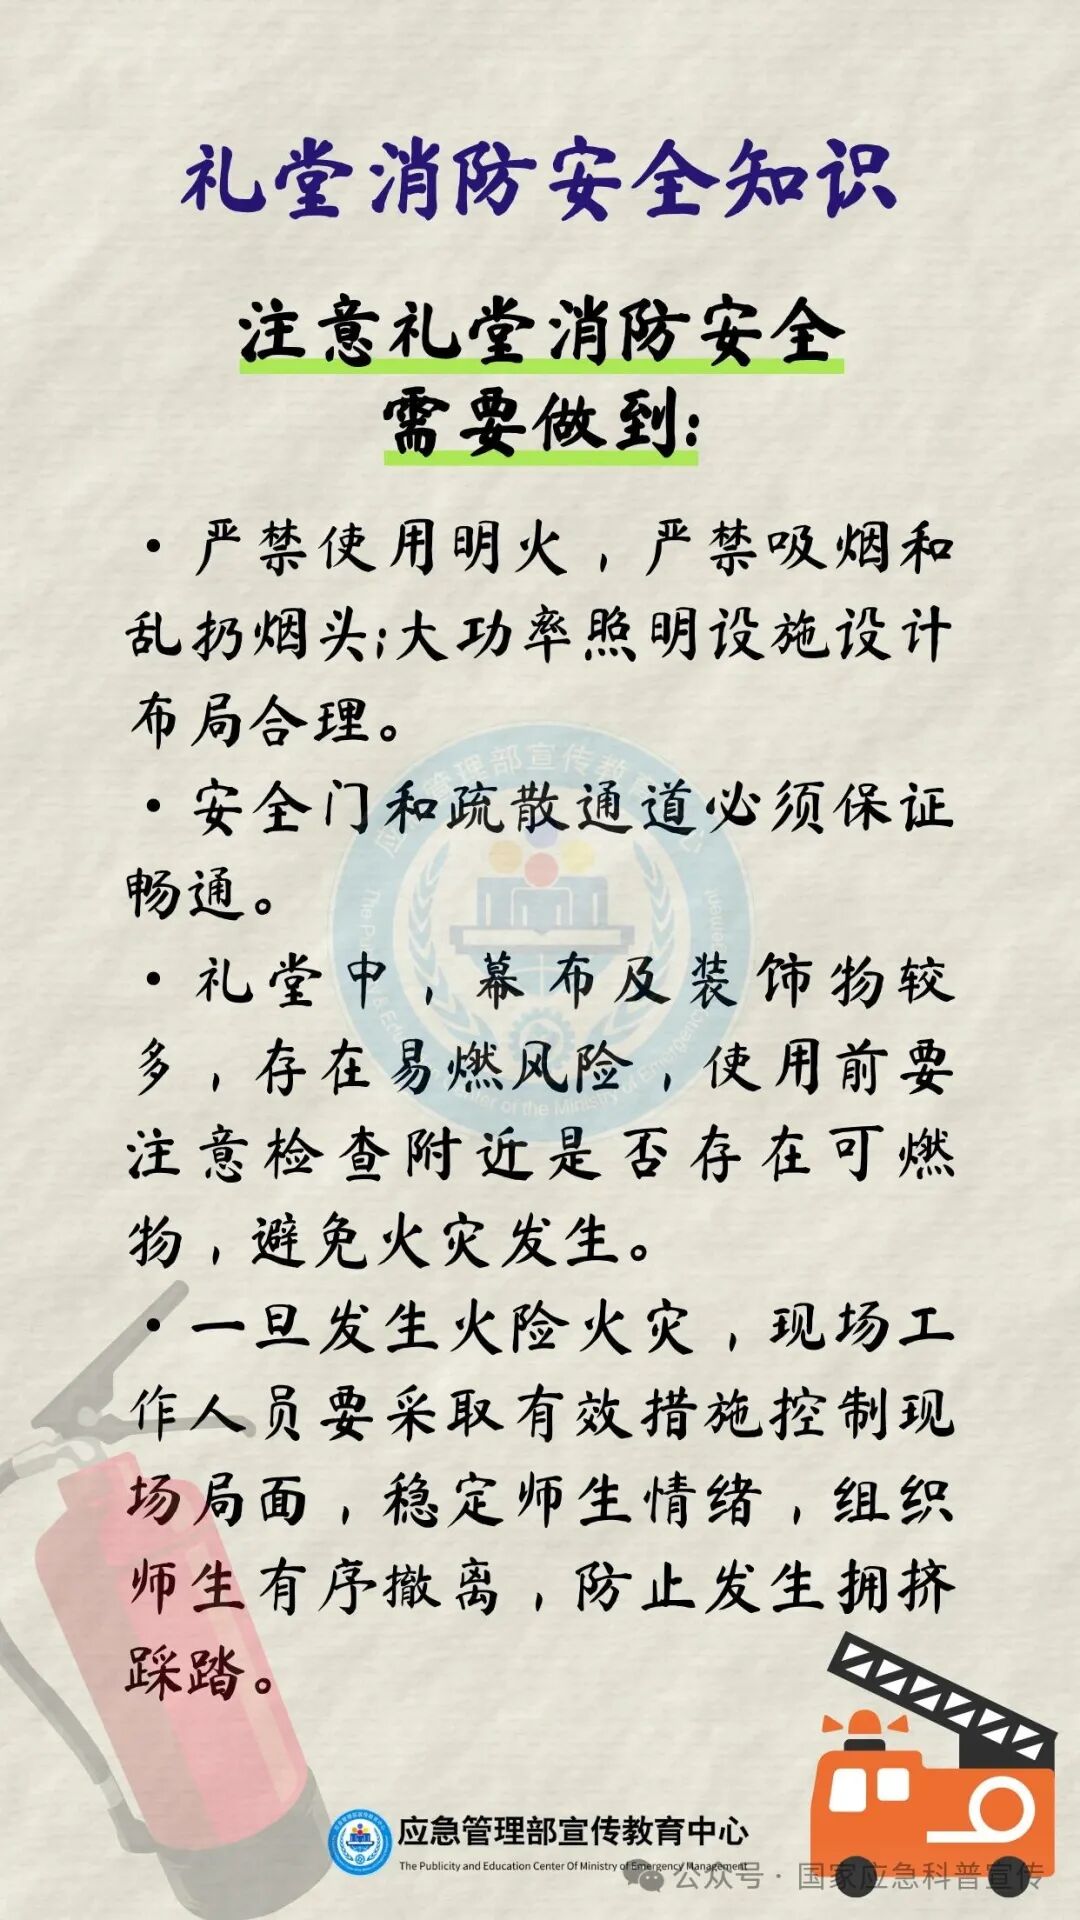 礼堂消防安全知识
注意礼堂消防安全
需要做到:
· 严禁使用明火，严禁吸烟和
乱扔烟头;大功率照明设施设计
布局合理。
· 安全门和疏散通道必须保证
畅通。
· 礼堂中，幕布及装饰物较
多，存在易燃风险，使用前要
注意检查附近是否存在可燃
物，避免火灾发生。
· 一旦发生火险火灾，现场工
作人员要采取有效措施控制现
场局面，稳定师生情绪，组织
师生有序撤离，防止发生拥挤
踩踏。
应急管理部宣传教育中心
The Publicity and Education Center Of Ministry of Emergency Management
公众号 · 国家应急科普宣传